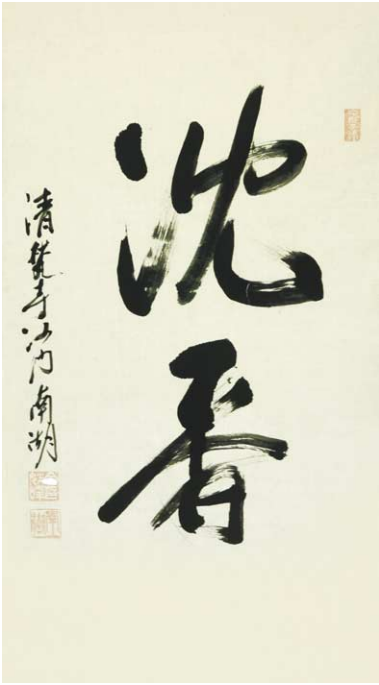 沈香
清梵寺沙門南湖